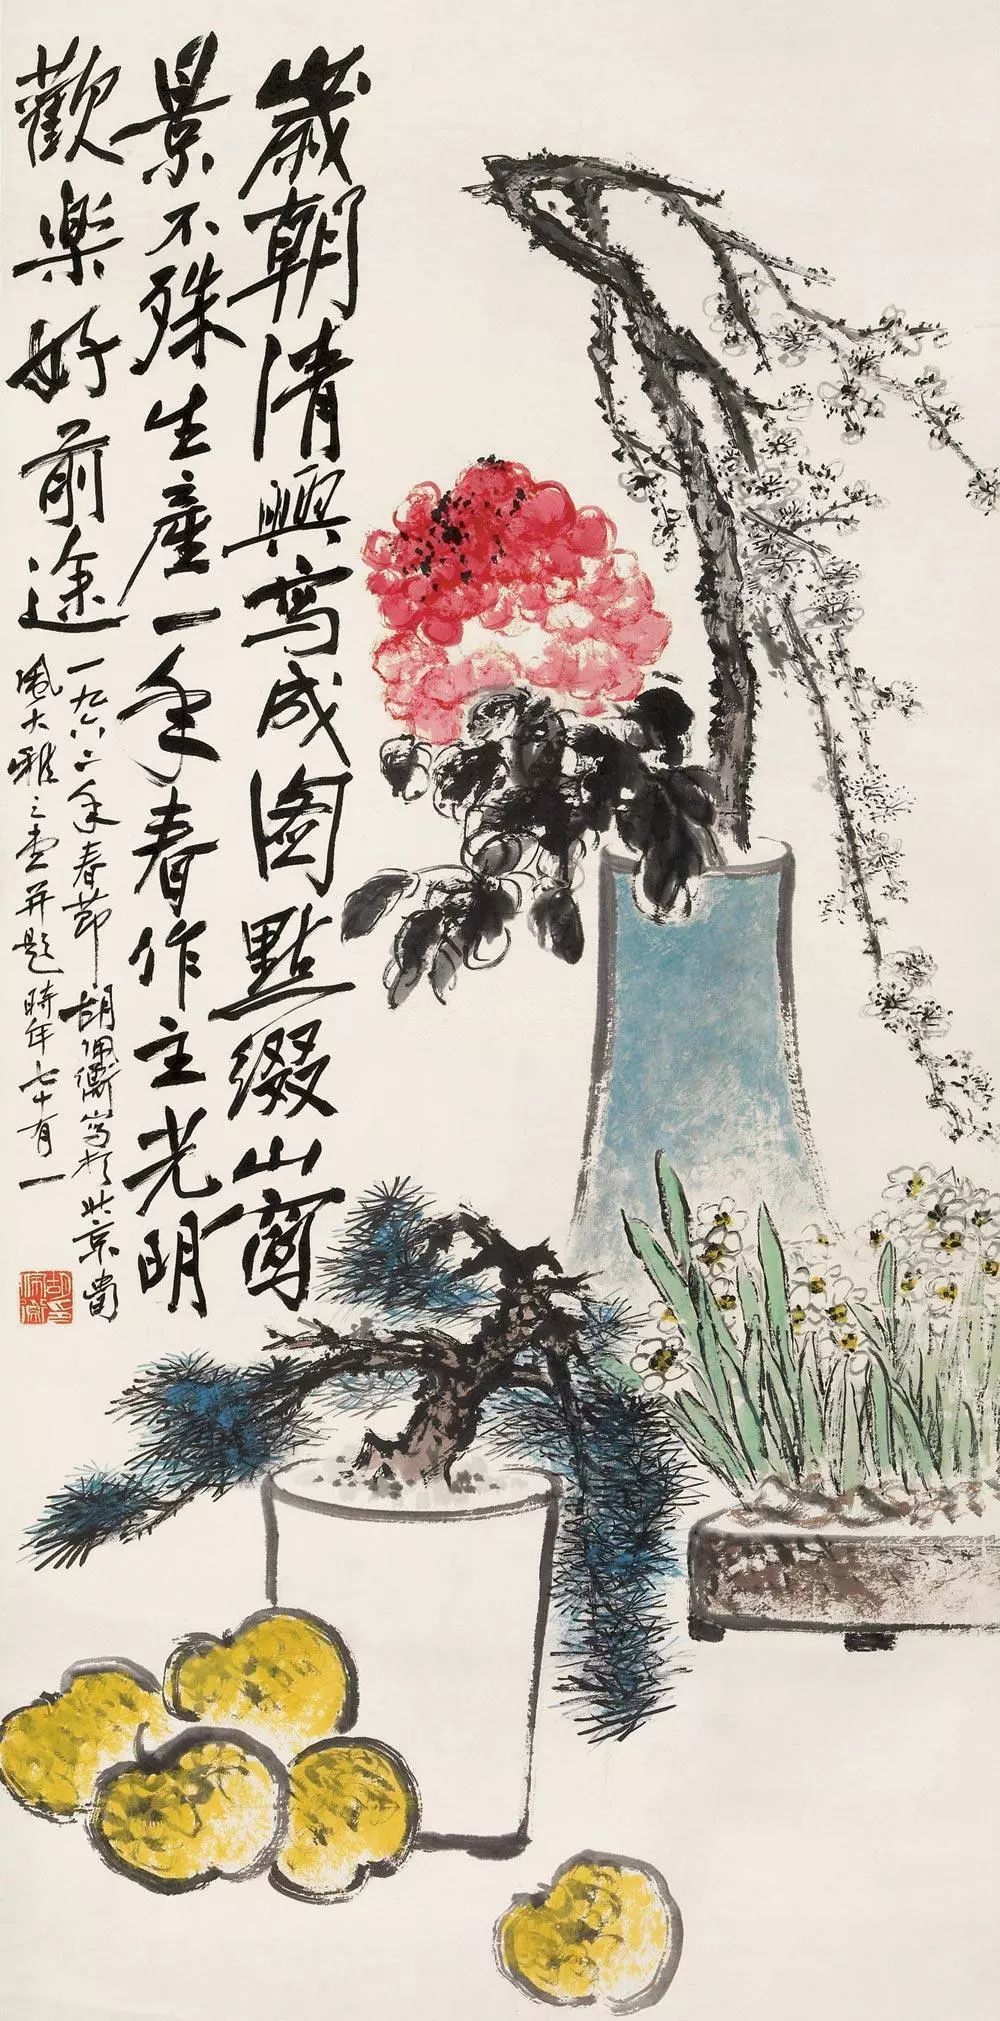 歲朝清興寫成圖點綴山窗
景不殊生產一年春作主光明
歡樂好前途
一九六二年春節胡佩衡寫於北京
風大雅之堂并題時年七十有一
胡印佩衡